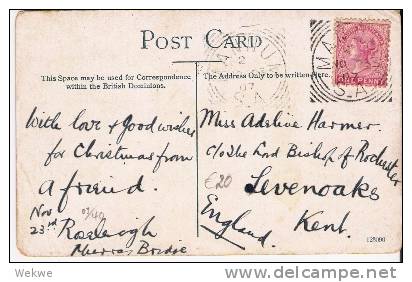 POST CARD
This Space may be used for Correspondence
within the British Dominions.
The Address Only to be written here.
With love & Good wishes
for Christmas from
a friend.
Nov
23rd Roseleigh
Murray Bridge
Miss Adeline Harmer
c/o the Lord Bishop of Rochester
Sevenoaks
Kent.
England
£20
2
07
S.A
MA
S.A.
ONE PENNY
123090
Wekwe
www.delcampe.net